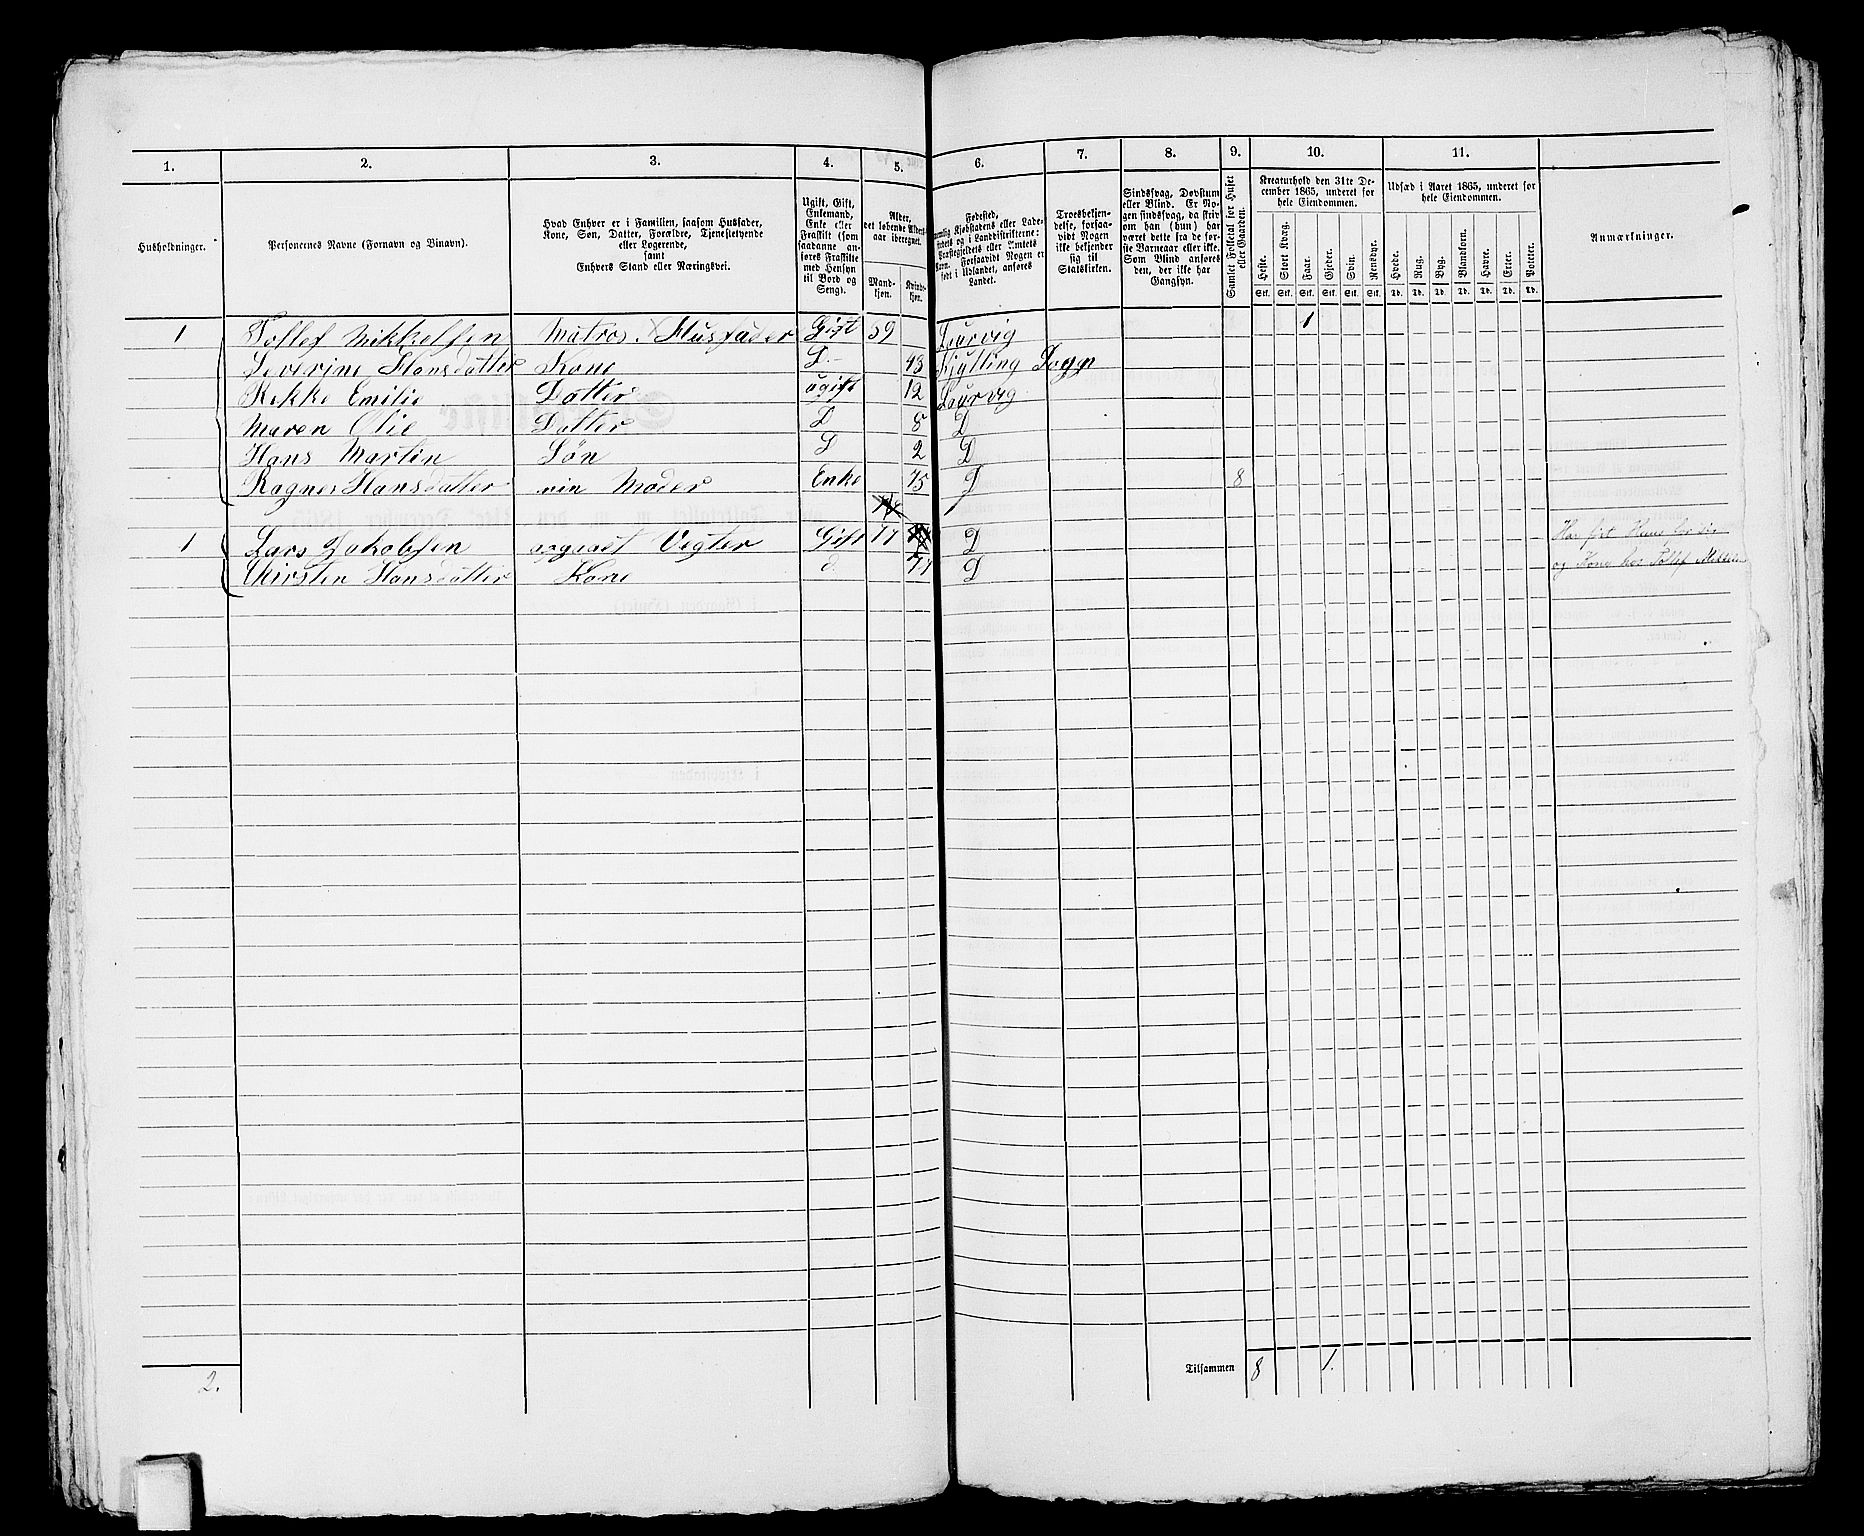 1. 2. 3. 4. 5. 6. 7. 8. 9. 10. 11.
Husholdninger.
Personernes Navne (Fornavn og Binavn).
Hvad Enhver er i Familien, saasom Husfader,
Kone, Søn, Datter, Forældre, Tjenestetyende
eller Logerende,
samt
Enhvers Stand eller Næringsvei.
Ugift, Gift,
Enkemand,
Enke eller
Fraskilt (som
saadanne an-
føres Fraskilte
med Hensyn
til Bord og
Seng).
Alder,
det løbende Alders-
aar iberegnet.
Mand-
kjøn.
Kvinde-
kjøn.
Fødested,
nemlig Kjøbstadens eller Lade-
stedets og i Landdistrikterne:
Præstegjeldets eller Amtets
Navn. Forsaavidt Nogen er
født i Udlandet, anføres
Landet.
Troesbekjen-
delse, forsaa-
vidt Nogen
ikke bekjender
sig til
Statskirken.
Sindssvag, Døvstum
eller Blind. Er No-
gen sindssvag, da skriv
om han (hun) har
været dette fra de før-
ste Barneaar eller ikke.
Som Blind anføres
den, der ikke har
Gangsyn.
Samlet Folketal for Huset
eller Gaarden.
Kreaturhold den 31te De-
cember 1865, underet for
hele Eiendommen.
Heste. Stort Kvæg. Faar. Gjeder. Svin. Rensdyr.
Stk. Stk. Stk. Stk. Stk. Stk.
Udsæd i Aaret 1865, underet for
hele Eiendommen.
Hvede. Rug. Byg. Blandkorn. Havre. Erter. Poteter.
Td. Td. Td. Td. Td. Td. Td.
Anmærkninger.
1 Tollef Mikkelsen Matros Husfader Gift 39 Laurvig 1
Severine Hansdatter Kone D 43 Kjølling Sogn
Rikke Emilie Datter ugift 12 Laurvig
Maren Olie Datter D 8 D
Hans Martin Søn D 2 D
Ragne Hansdatter min Moder Enke 75 D 8
1 Lars Jakobsen Vegter Gift 77 D Har sit Huus for sig
Kirsten Hansdatter Kone d. 77 D og Kone hos Tollef
2.
Tilsammen 8 1.